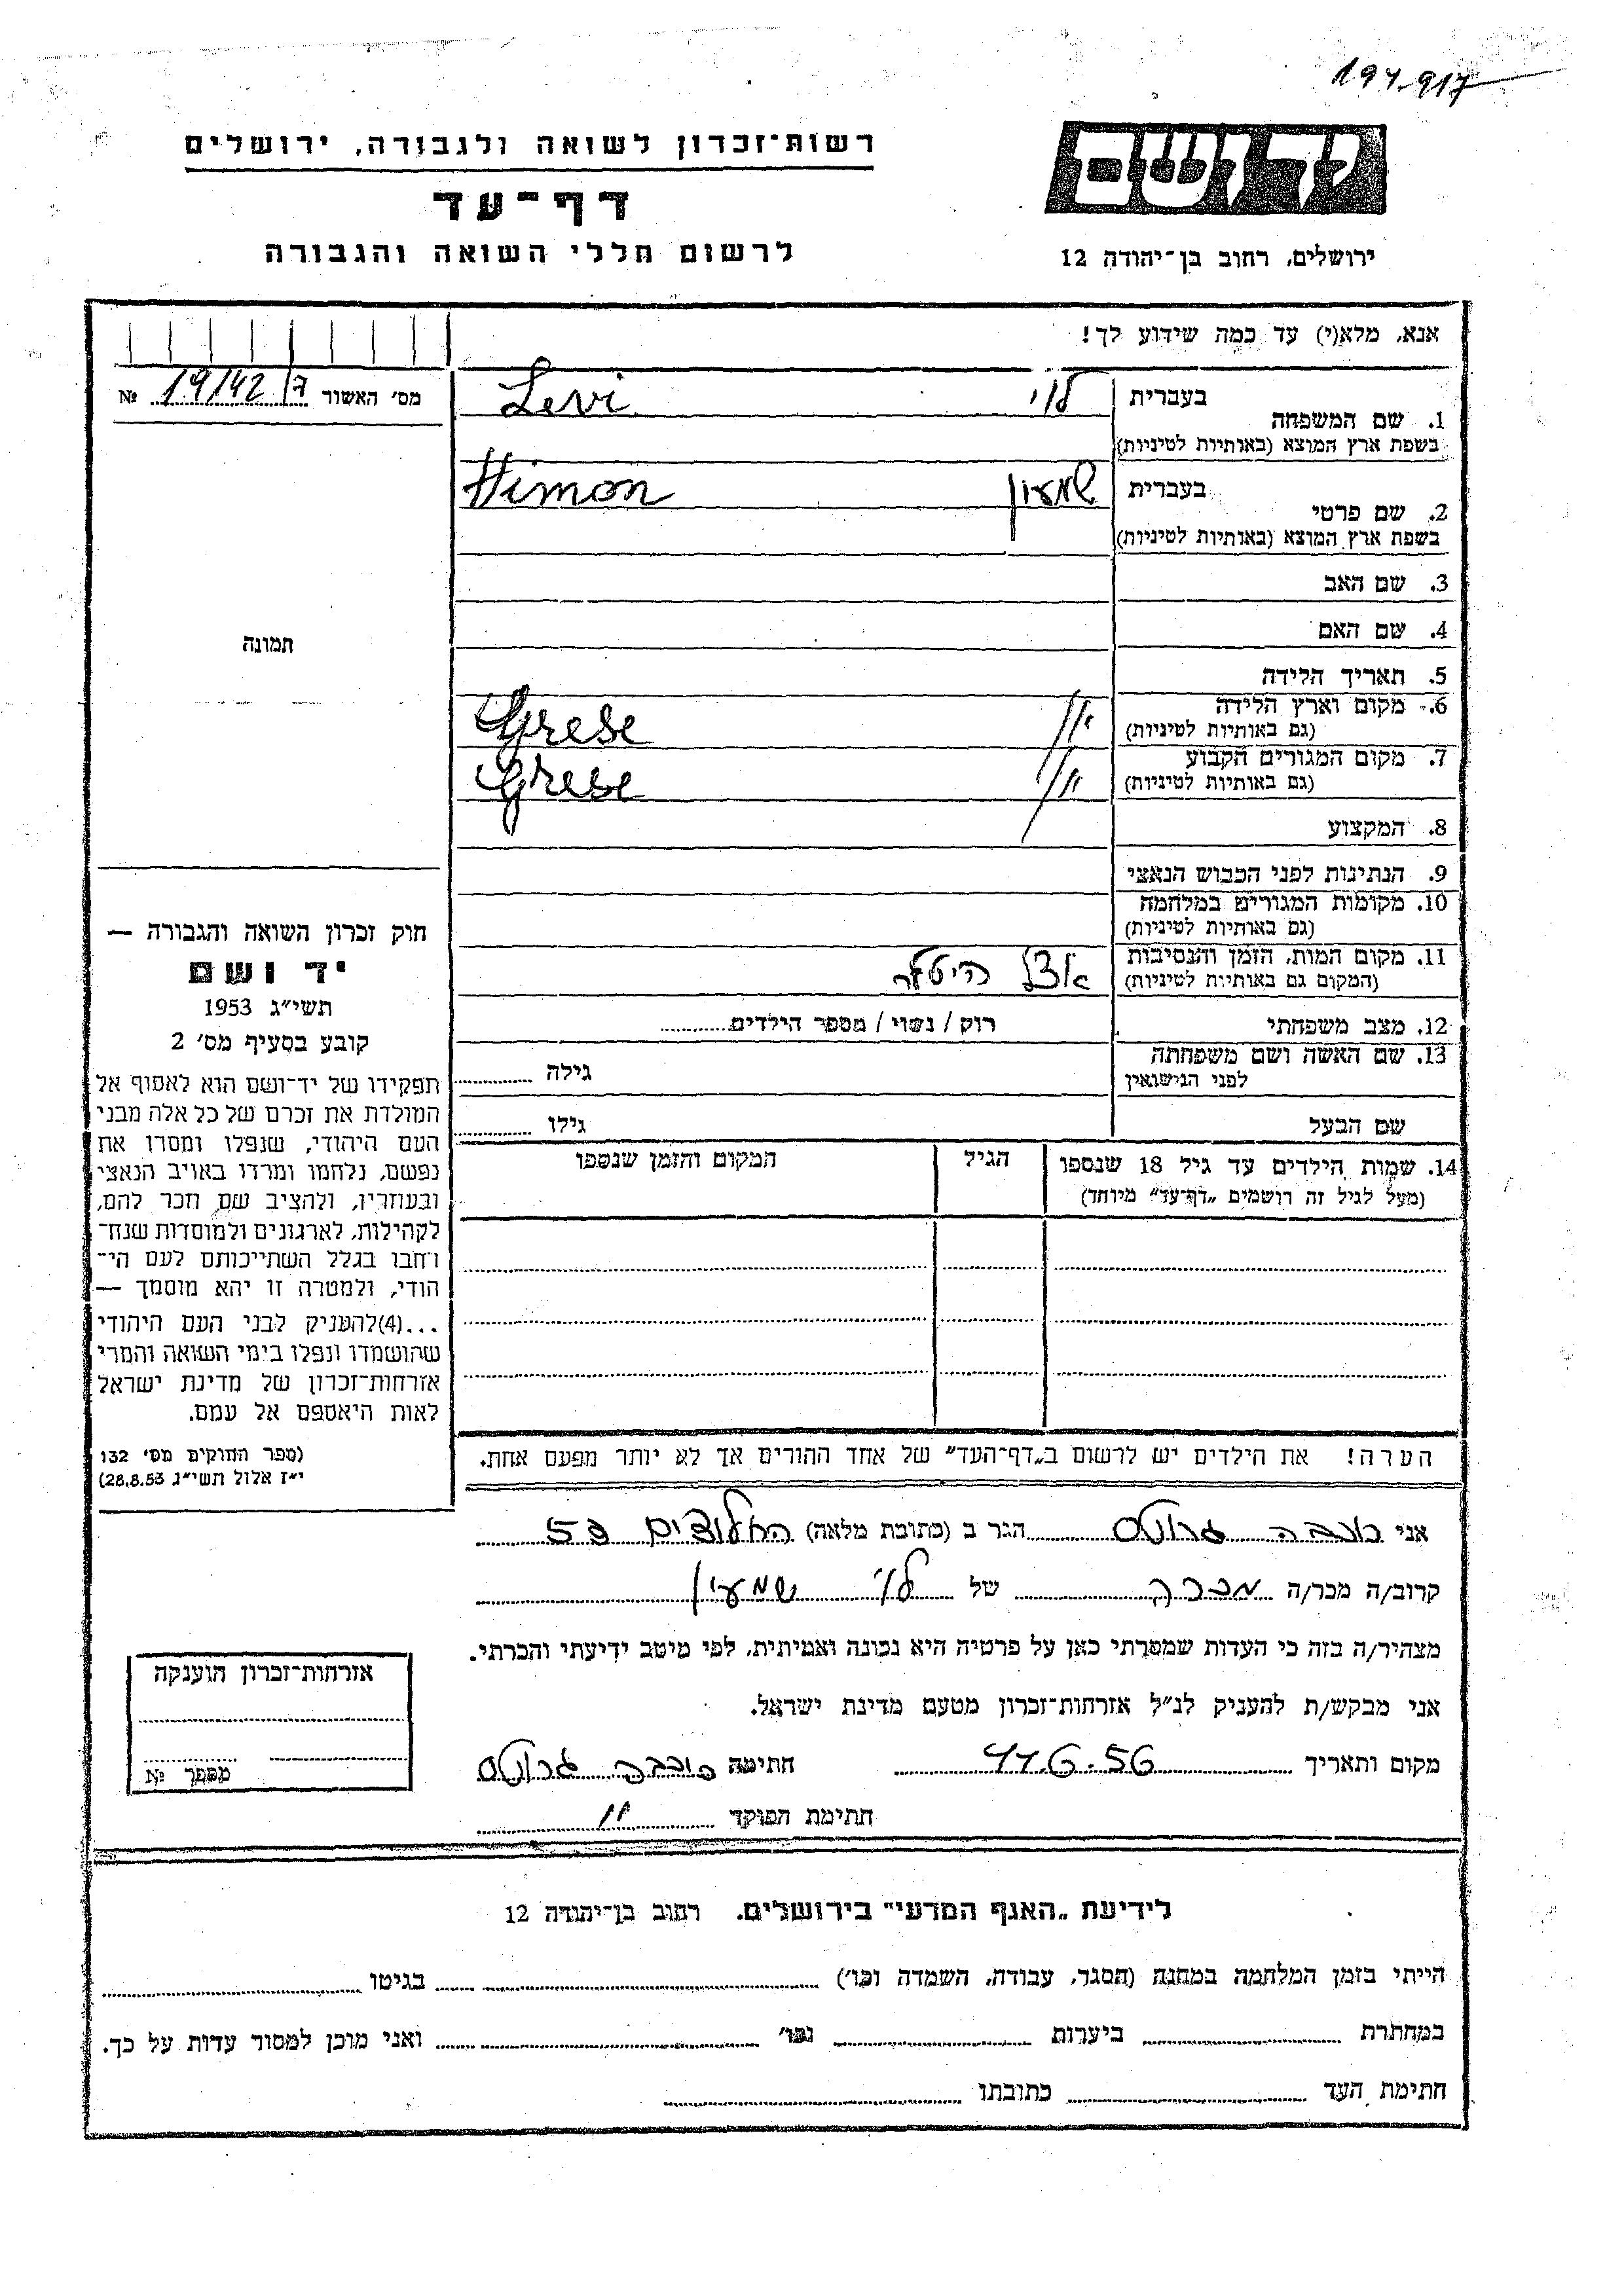 194.917
רשות־זכרון לשואה ולגבורה, ירושלים
דף־עד
לרשום חללי השואה והגבורה
ידושם
ירושלים, רחוב בן־יהודה 12
אנא, מלא(י) עד כמה שידוע לך!
מס׳ האשור 19/42/7 №
1. שם המשפחה
בעברית לוי Levi
בשפת ארץ המוצא (באותיות לטיניות)
2. שם פרטי
בעברית שמעון Himon
בשפת ארץ המוצא (באותיות לטיניות)
3. שם האב
4. שם האם
תמונה
5. תאריך הלידה
6. מקום וארץ הלידה יון Grese
(גם באותיות לטיניות)
7. מקום המגורים הקבוע יון Grese
(גם באותיות לטיניות)
8. המקצוע
9. הנתינות לפני הכבוש הנאצי
10. מקומות המגורים במלחמה
(גם באותיות לטיניות)
11. מקום המות, הזמן והנסיבות אצל היטלר
(המקום גם באותיות לטיניות)
12. מצב משפחתי רוק / נשוי / מספר הילדים
13. שם האשה ושם משפחתה
לפני הנישואין גילה
שם הבעל גילו
14. שמות הילדים עד גיל 18 שנספו הגיל המקום והזמן שנספו
(מעל לגיל זה רושמים „דף־עד” מיוחד)
חוק זכרון השואה והגבורה —
יד ושם
תשי״ג 1953
קובע בסעיף מס׳ 2
תפקידו של יד־ושם הוא לאסוף אל
המולדת את זכרם של כל אלה מבני
העם היהודי, שנפלו ומסרו את
נפשם, נלחמו ומרדו באויב הנאצי
ובעוזריו, ולהציב שם וזכר להם,
לקהילות, לארגונים ולמוסדות שנח־
רבו בגלל השתייכותם לעם הי־
הודי, ולמטרה זו יהא מוסמך —
...(4)להעניק לבני העם היהודי
שהושמדו ונפלו בימי השואה והמרי
אזרחות־זכרון של מדינת ישראל
לאות היאספם אל עמם.
(ספר החוקים מס׳ 132
י״ז אלול תשי״ג 28.8.53)
הערה! את הילדים יש לרשום ב„דף־העד” של אחד ההורים אך לא יותר מפעם אחת.
אני הגר ב (כתובת מלאה) החלוצים 53
קרוב/ה מכר/ה מכרה של לוי שמעון
מצהיר/ה בזה כי העדות שמסרתי כאן על פרטיה היא נכונה ואמיתית, לפי מיטב ידיעתי והכרתי.
אני מבקש/ת להעניק לנ״ל אזרחות־זכרון מטעם מדינת ישראל.
מקום ותאריך 11.6.56 חתימה
חתימת הפוקד
אזרחות־זכרון הוענקה
מספר №
לידיעת „האגף המדעי” בירושלים, רחוב בן־יהודה 12
הייתי בזמן המלחמה במחנה (הסגר, עבודה, השמדה וכו׳) בגיטו
במחתרת ביערות וכו׳ ואני מוכן למסור עדות על כך.
חתימת העד כתובתו